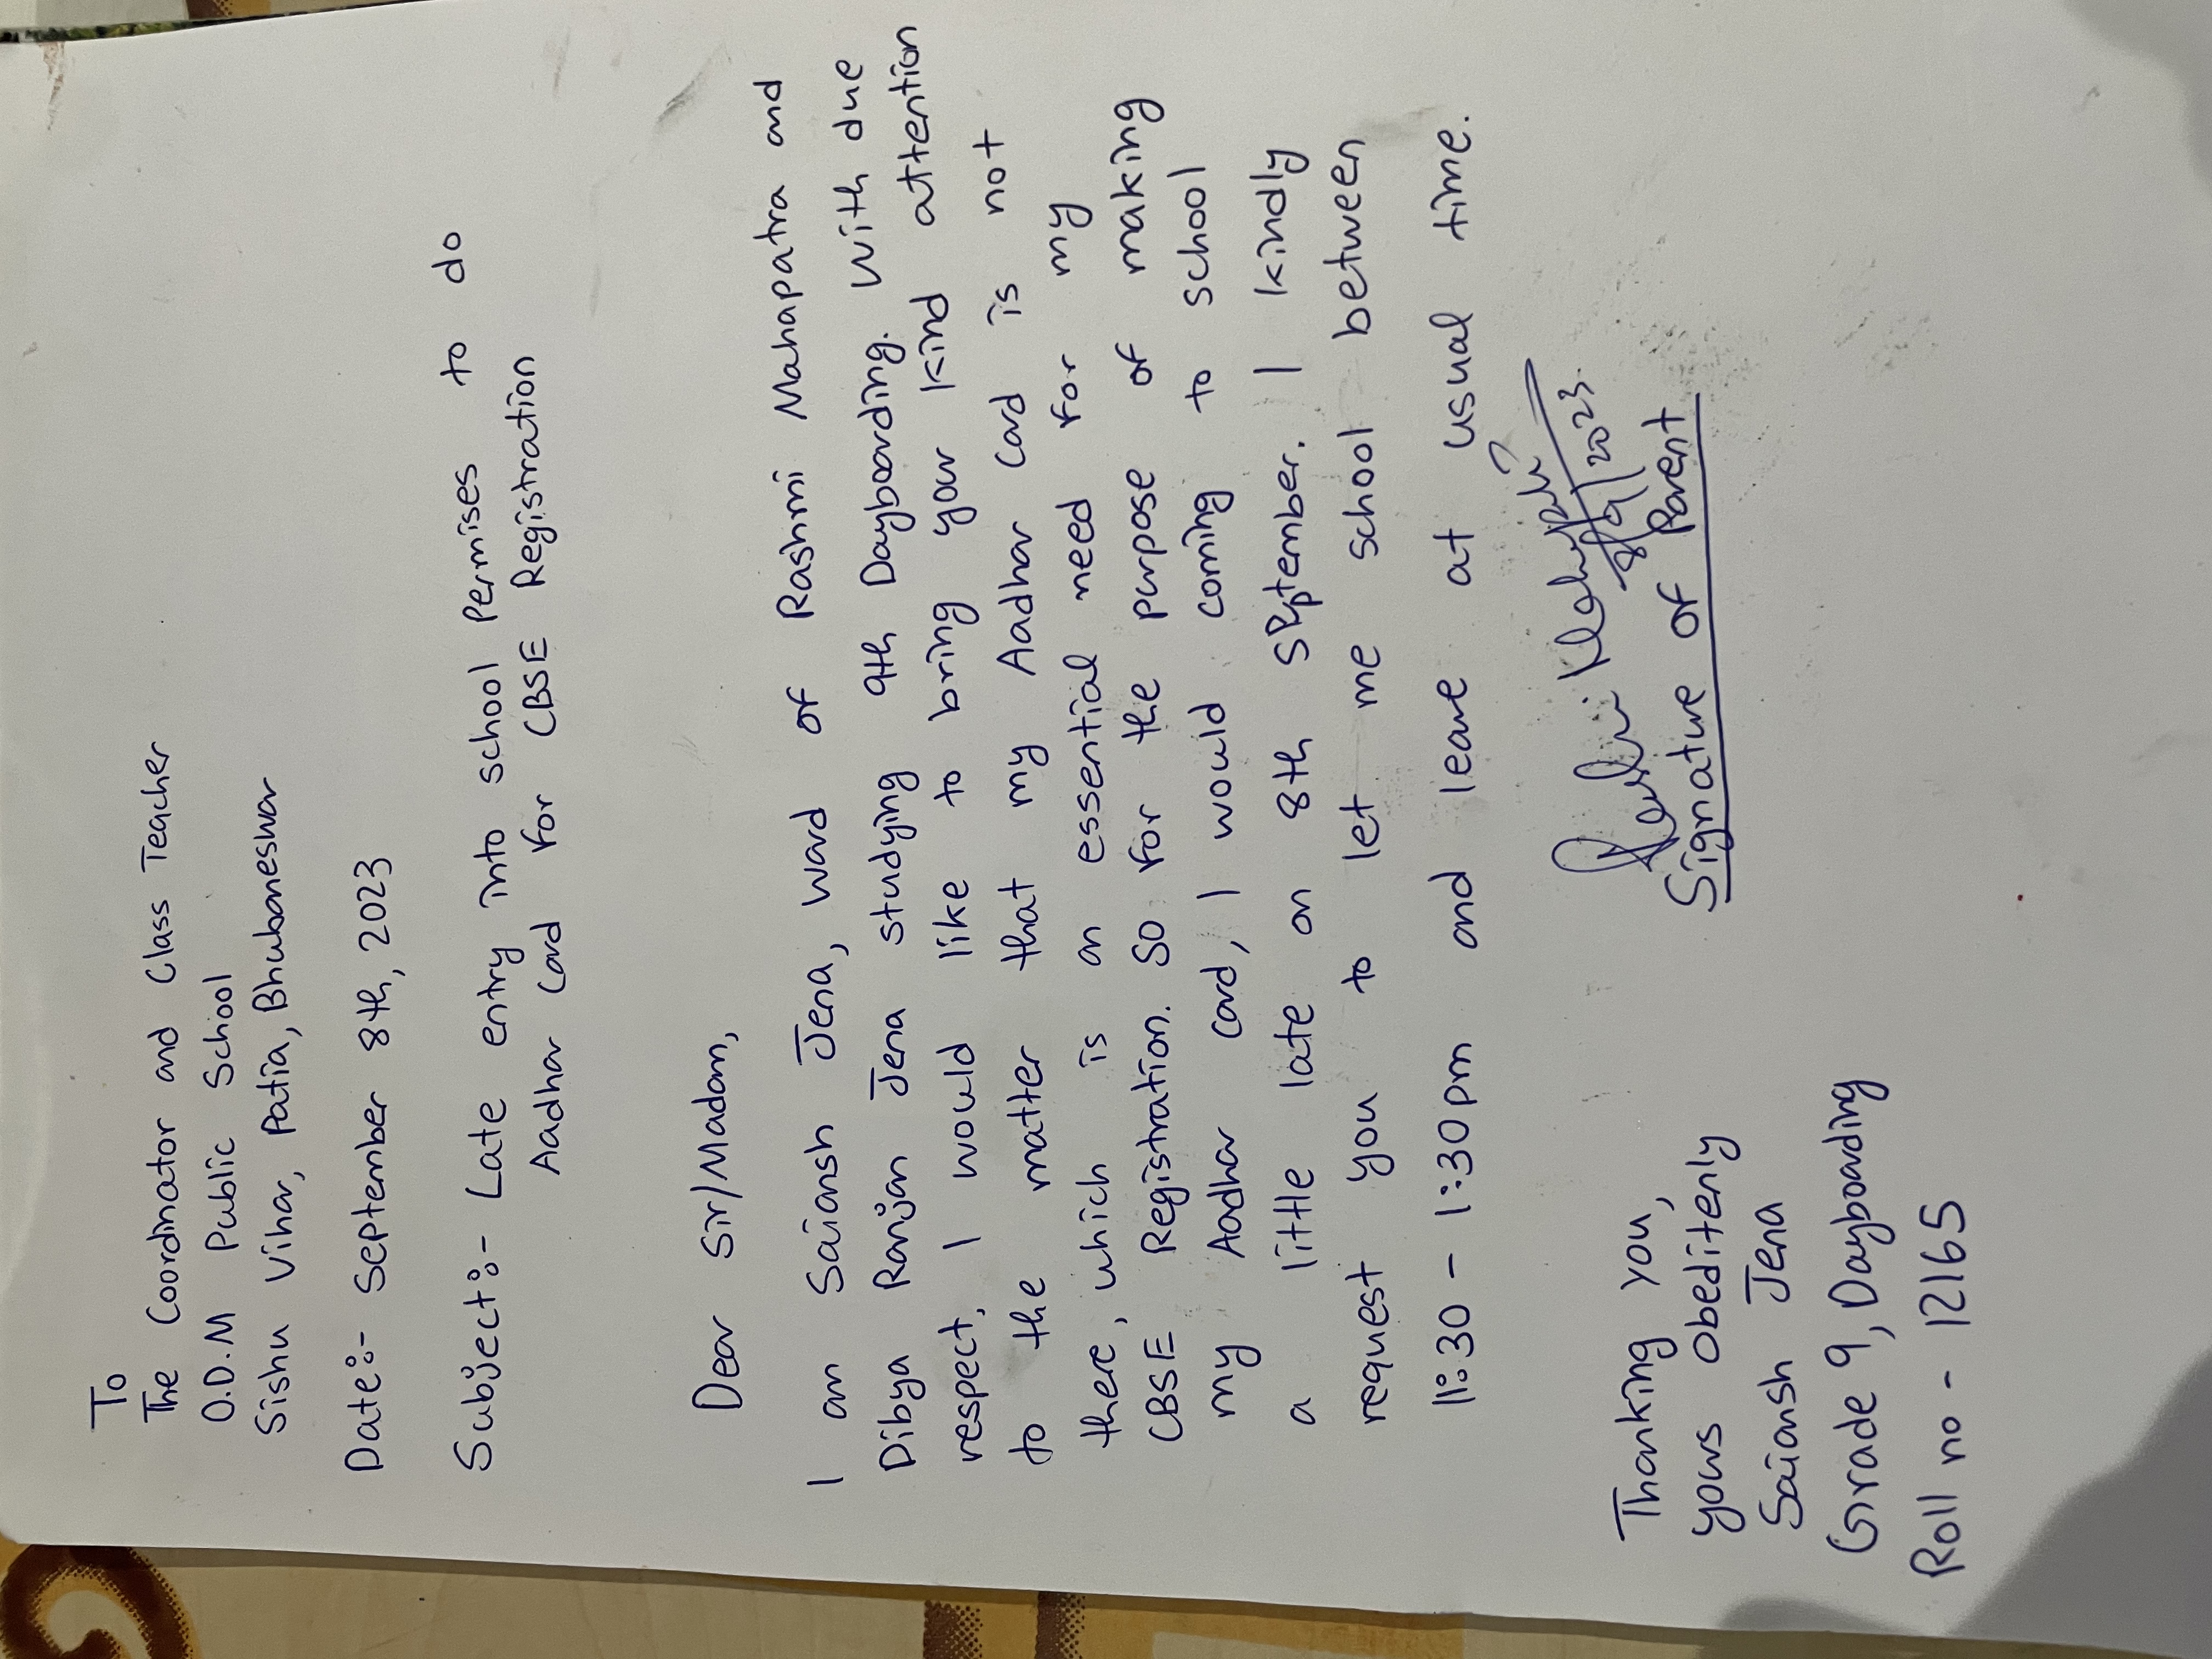 To
The Coordinator and Class Teacher
O.D.M Public School
Sishu Vihar, Patia, Bhubaneswar
Date:- September 8th, 2023
Subject:- Late entry into school Permises to do
Aadhar Card for CBSE Registration
Dear Sir/Madam,
I am Saiansh Jena, ward of Rashmi Mahapatra and
Dibya Ranjan Jena studying 9th Dayboarding. With due
respect, I would like to bring your kind attention
to the matter that my Aadhar Card is not
there, which is an essential need for my
CBSE Registration. So for the purpose of making
my Aadhar card, I would coming to school
a little late on 8th September. I kindly
request you to let me school between
11:30 - 1:30pm and leave at usual time.
Rashmi Mahapatra
8/9/2023
Signature of Parent
Thanking you,
yours obeditenly
Saiansh Jena
Grade 9, Dayboarding
Roll no - 12165